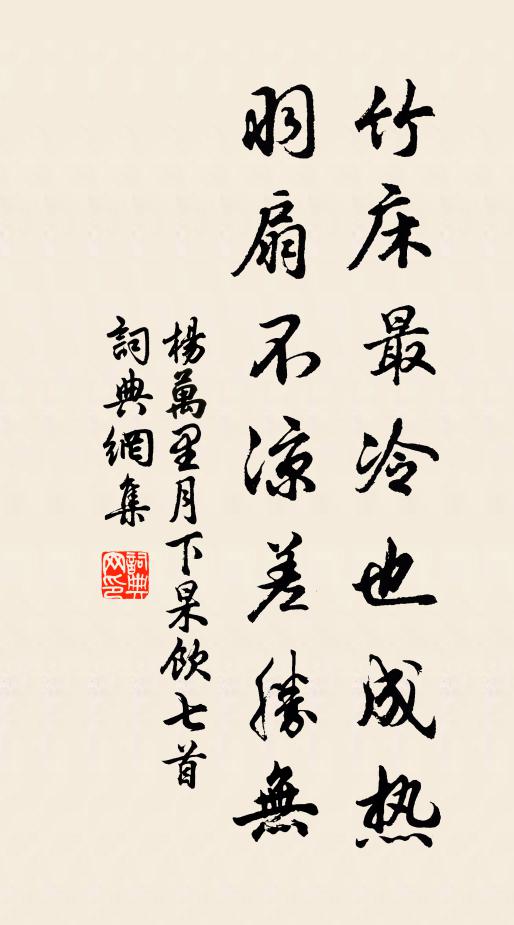 竹床最冷也成热
羽扇不凉差勝無
楊萬里月下杲飲七首
詞典網集
詞典网印